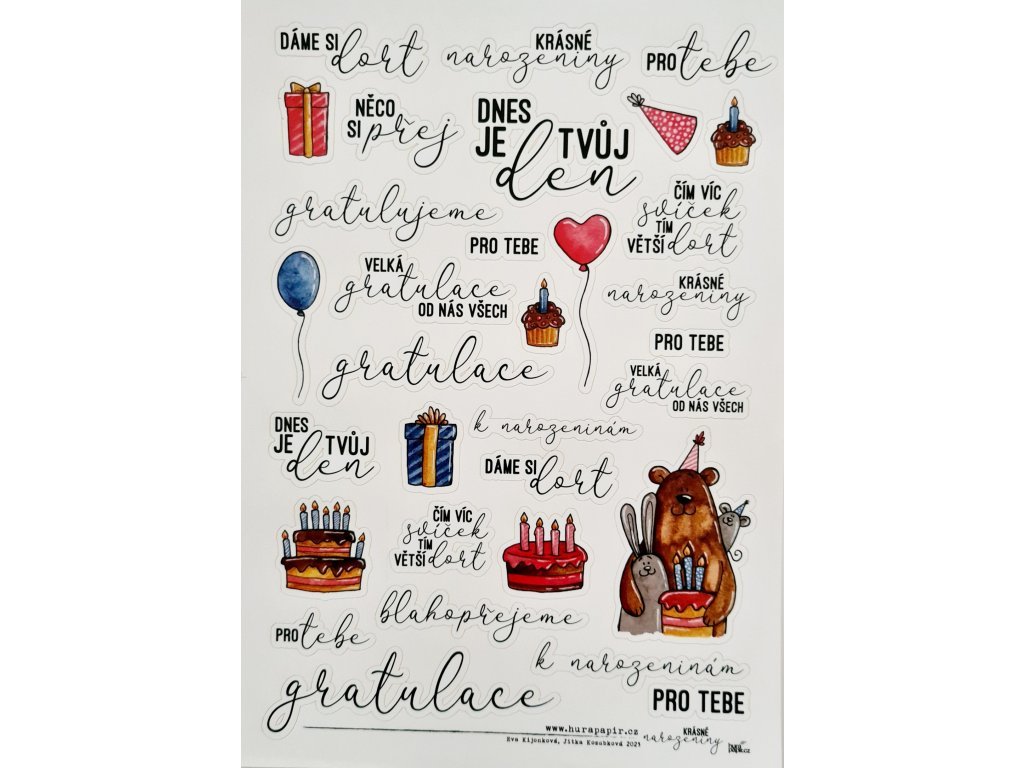 DÁME SI dort
KRÁSNÉ
narozeniny
PRO tebe
NĚCO
SI přej
DNES
JE TVŮJ
den
ČÍM VÍC
svíček
TÍM
VĚTŠÍ dort
gratulujeme
PRO TEBE
VELKÁ
gratulace
OD NÁS VŠECH
KRÁSNÉ
narozeniny
PRO TEBE
gratulace
VELKÁ
gratulace
OD NÁS VŠECH
DNES
JE TVŮJ
den
k narozeninám
DÁME SI dort
ČÍM VÍC
svíček
TÍM
VĚTŠÍ dort
blahopřejeme
PRO tebe
k narozeninám
gratulace
PRO TEBE
www.hurapapir.cz
Eva Kijonková, Jitka Kosubková 2023
KRÁSNÉ
narozeniny